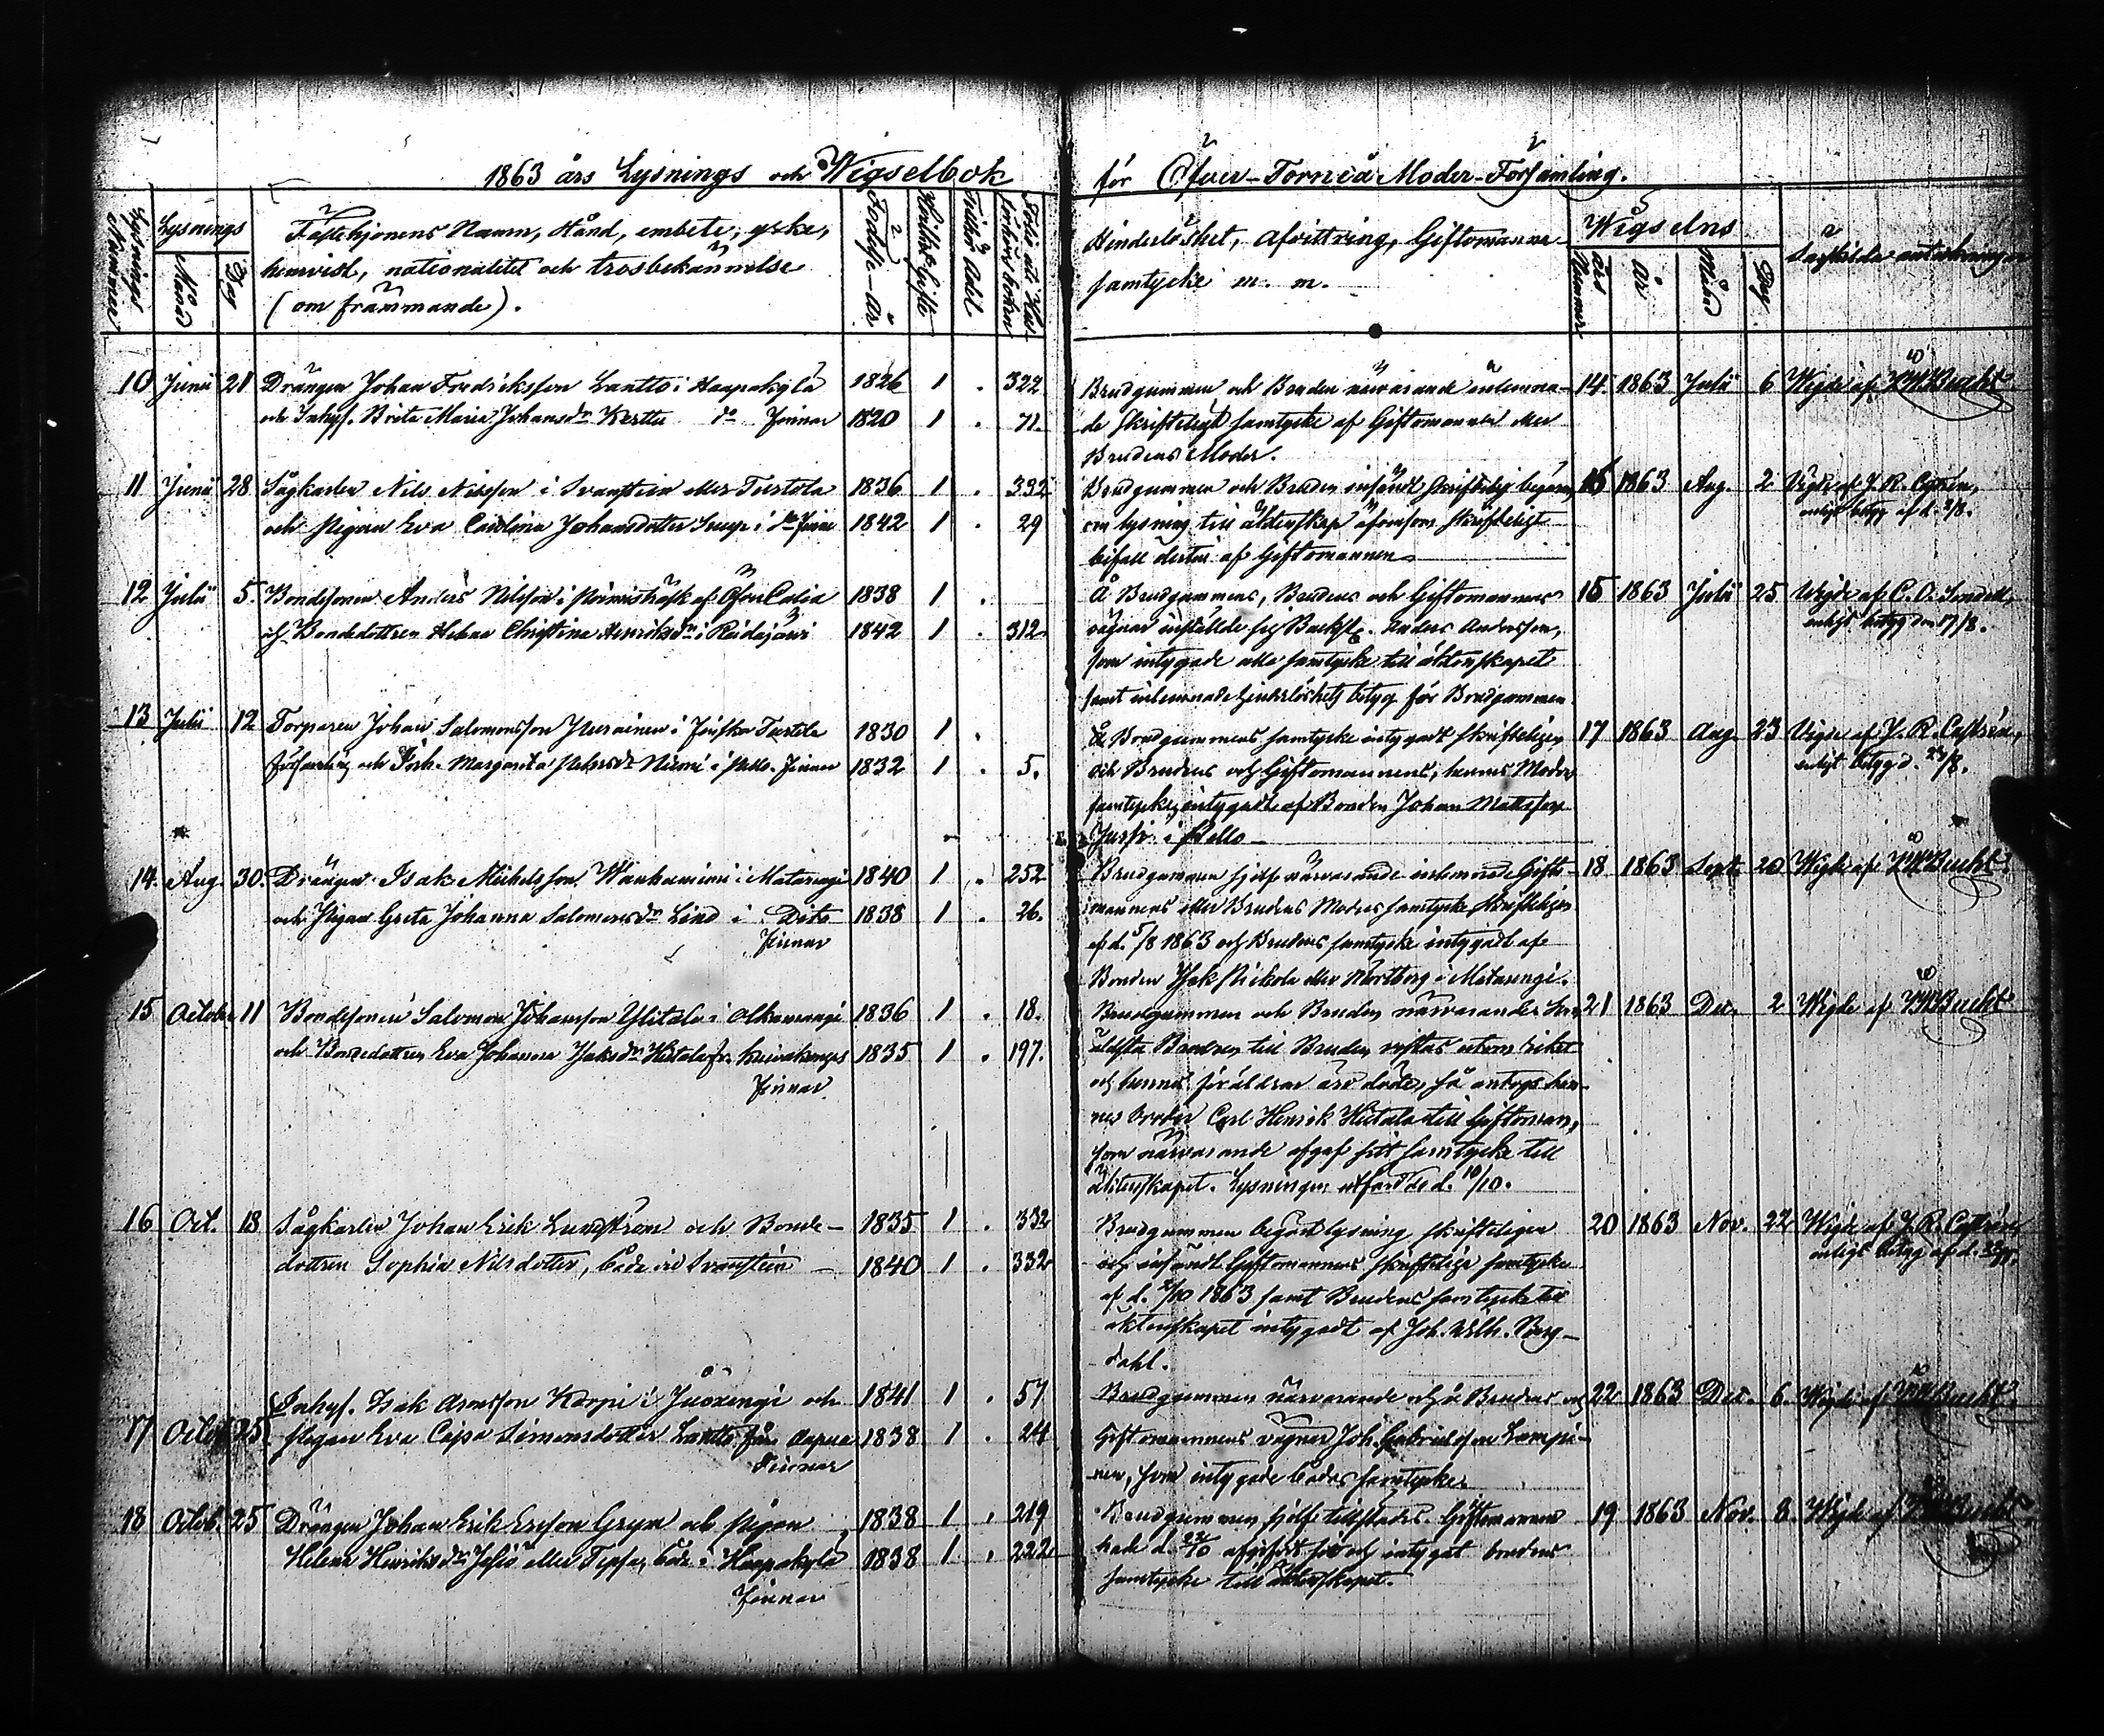 1863 års Lysnings och Wigselbok
för Öfver-Torneå Moder-Församling.
Lysnings Nummer
Lysnings
Månad
Dag
Fästehjonens Namn, stånd, embete, yrke,
hemvist, nationalitet och trosbekännelse
(om främmande).
Födelse-år
Hvilket Gifte
Folio uti Hus-
förhörsboken
Hinderslöshet, Afvittring, Giftomanna-
samtycke m. m.
Wigselns
års Nummer
År
Månad
Dag
Särskilda anteckningar
10 Junii 21 Drängen Johan Fredriksson Lantto i Haapakylä 1826 1 . 322
och Inhys. Brita Maria Johansdr Kerttu do Finnar 1820 1 . 71.
Brudgummen och Bruden närvarande inlemna- 14. 1863 Julii 6 Wigde af Bucht
de skrifteligt samtycke af Giftomannen eller
Brudens Moder.
11 Junii 28 Sågkarlen Nils Nilsson i Svanstein eller Turtola 1836 1 . 332
och Pigan Eva Carolina Johansdotter i do 1842 1 . 29
Brudgummen och Bruden insändt skriftelig begäran 16 1863 Aug. 2 Vigde af J. R.
om lysning till äktenskap äfvensom skrifteligt enligt betyg af d.
bifall dertill af Giftomannen
12 Julii 5. Bondesonen Anders Nilsson i af Öfver Calix 1838 1 .
och Bondedottren Helena Christina Henriksdr i Reidajärvi 1842 1 . 312
Å Brudgummens, Brudens och Giftomannens 15 1863 Julii 25 Wigde af C. O.
vägnar inställde sig Anders Andersson, enligt betyg den 17/8.
som intygade alla samtycke till äktenskapet
samt inlemnade hinderslöshets betyg för Brudgummen.
13 Julii 12 Torparen Johan Salomonsson i Finska Turtola 1830 1 .
församling och Margareta Niemi i Pello. Finnar 1832 1 . 5.
Brudgummens samtycke intygadt skrifteligen 17 1863 Aug 23 Vigde af J. R. Castrén,
och Brudens och Giftomannens, hennes Moders enligt betyg d. 23/8.
samtycke, intygadt af Bonden Johan Mattsson
i Pello
14. Aug. 30. Drängen Isak Michelsson Wanhaniemi i Matarengi 1840 1 . 252
och Pigan Greta Johanna Salomonsdr Lind i Dito 1838 1 . 26.
Finnar
Brudgummen sjelf närvarande inlemnade Gifto- 18 1863 Sept. 20 Wigde af Bucht
mannens eller Brudens Moders samtycke skrifteligen
af d. 5/8 1863 och Brudens samtycke intygadt af
Bonden Isak Nickola eller i Matarengi.
15 October 11 Bondesonen Salomon Johansson Ylitalo i Alkuarengi 1836 1 . 18.
och Bondedottren Eva Johanna Isaksdr Hietala fr. 1835 1 . 197.
Finnar.
Brudgummen och Bruden närvarande 21 1863 Dec. 2 Wigde af Bucht
äldsta Brodren till Bruden vistas utom riket
och hennes föräldrar äro döde, så antogs hen-
nes broder Carl Henrik Hietala till Giftoman,
som närvarande afgaf sitt samtycke till
äktenskapet. Lysningen utfärdades d. 10/10.
16 Oct. 18 Sågkarlen Johan Erik Lundström och Bonde- 1835 1 . 332
dottren Sophia Nilsdotter, både vid Svanstein 1840 1 . 332
Brudgummen begärt lysning skrifteligen 20 1863 Nov. 22 Wigde af J. R. Castrén
och insändt Giftomannens skriftelige samtycke enligt betyg af d.
af d. 1863 samt Brudens samtycke till
äktenskapet intygadt af Joh. Wilh. Berg-
dahl.
17 Octob. 25 Inhys. Isak Aronsson Karpi i Juoxengi och 1841 1 . 57
Pigan Eva Cajsa Simonsdotter Lantto från Aapua 1838 1 . 24
Finnar
Brudgummen närvarande och å Brudens och 22 1863 Dec. 6. Wigde af Bucht
Giftomannens vägnar Joh. Gabrielsson Lampi-
nen, som intygade bådas samtycke.
18 Octob. 25 Drängen Johan Erik Ersson Grym och Pigan 1838 1 . 219
Helena Henriksdr eller både i Haapakylä 1838 1 . 222
Finnar
Brudgummen sjelf tillstädes. Giftomannen 19 1863 Nov. 8. Wigde af Bucht
hade d. intygat brudens
samtycke till äktenskapet.